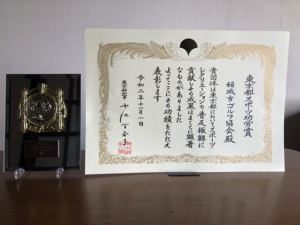 東京都スポーツ功労賞
稲城市ゴルフ協会殿
貴団体は東京都においてスポーツ・
レクリエーションの普及振興に
貢献しその成果はまことに顕著
なものがありました
よってここにその功績をたたえ
表彰します
令和二年十一月一日
東京都知事 小池百合子